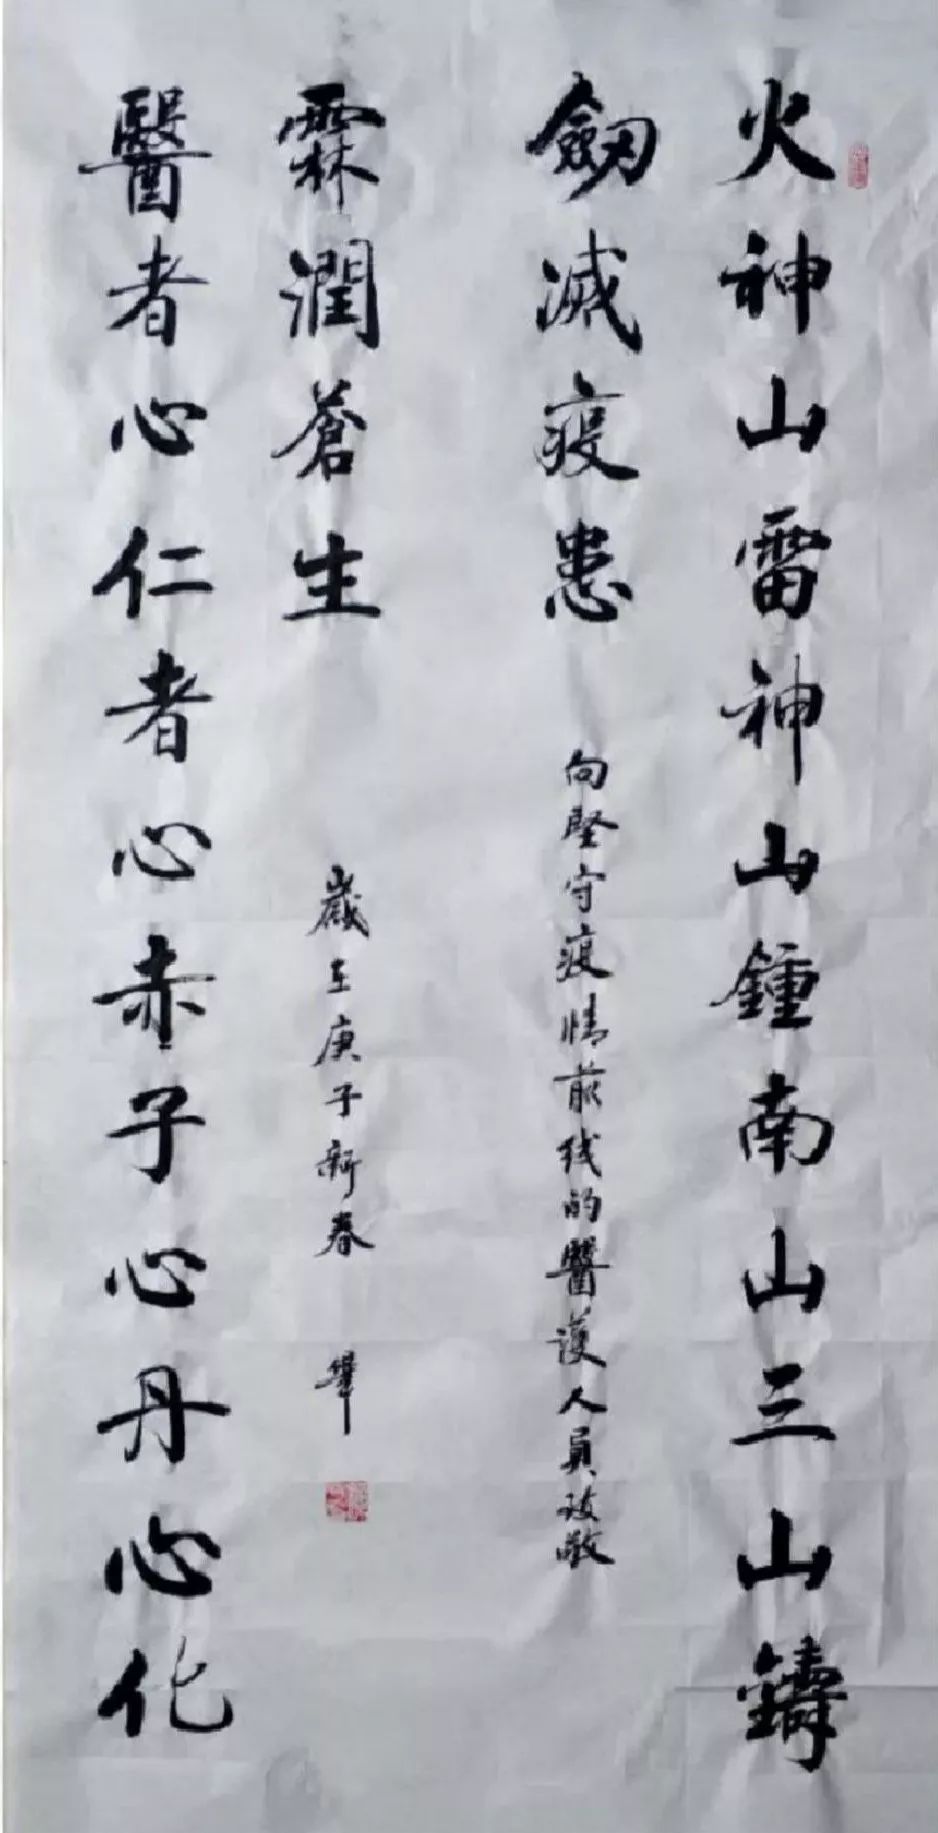 火神山雷神山鍾南山三山鑄
劒滅疫患
向堅守疫情前线的醫護人員致敬
醫者心仁者心赤子心丹心化
霖潤蒼生
歲在庚子新春